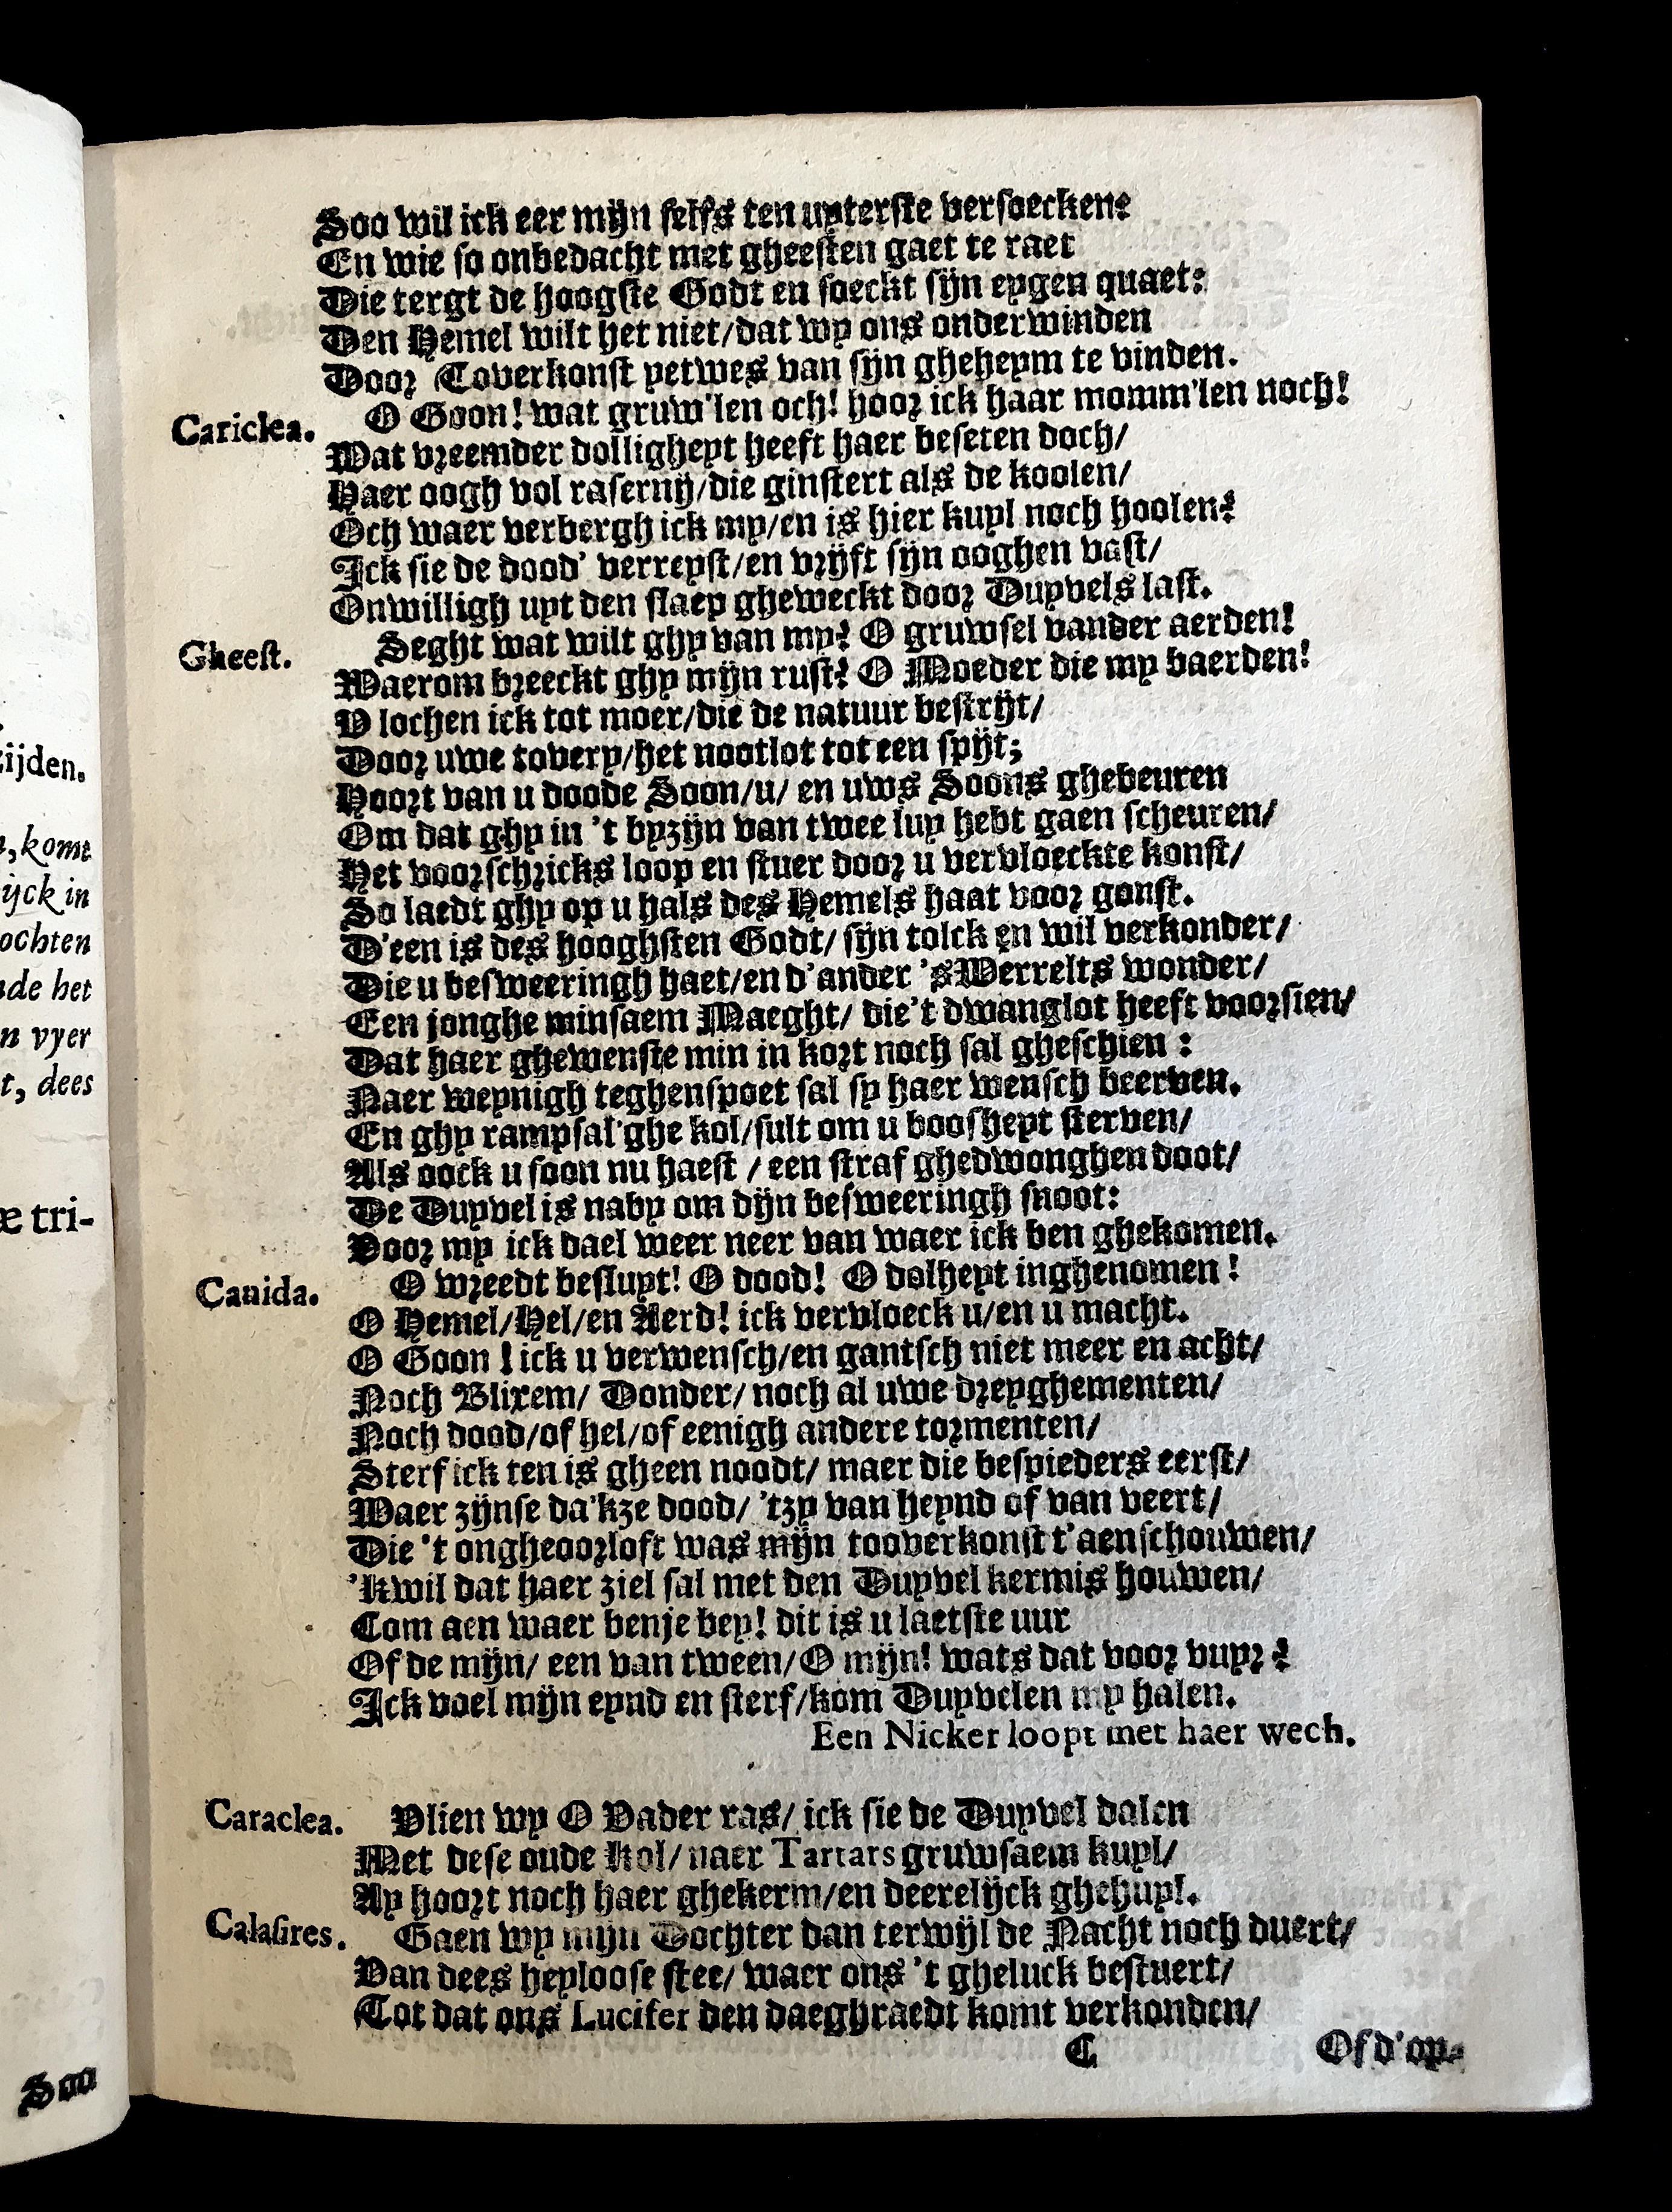 Soo wil ick eer mijn selfs ten uyterste versoecken?
En wie so onbedacht met gheesten gaet te raet
Die tergt de hoogste Godt en soeckt sijn eygen quaet:
Den Hemel wilt het niet/dat wy ons onderwinden
Door Toverkonst yetwes van sijn gheheym te vinden.
Cariclea. O Goon! wat gruw'len och! hoor ick haar momm'len noch!
Wat vreemder dollighept heeft haer beseten doch/
Haer oogh vol rasernij/die ginstert als de koolen/
Och waer verbergh ick my/en is hier kuyl noch hoolen?
Ick sie de dood' verreyst/en vrijft sijn ooghen vast/
Onwilligh uyt den slaep gheweckt door Duyvels last.
Gheest. Seght wat wilt ghy van my? O gruwsel vander aerden!
Waerom breeckt ghy mijn rust? O Moeder die my baerden!
V lochen ick tot moer/die de natuur bestrijt/
Door uwe tovery/het nootlot tot een spijt;
Hoort van u doode Soon/u/ en uws Soons ghebeuren
Om dat ghy in 't byzijn van twee luy hebt gaen scheuren/
Het voorschricks loop en stuer door u vervloeckte konst/
So laedt ghy op u hals des Hemels haat voor gonst.
D'een is des hooghsten Godt/ sijn tolck en wil verkonder/
Die u besweeringh haet/en d'ander 'sWerrelts wonder/
Een jonghe minsaem Maeght/ die't dwanglot heeft voorsien/
Dat haer ghewenste min in kort noch sal gheschien :
Naer weynigh teghenspoet sal sy haer wensch beerven.
En ghy rampsal'ghe kol/sult om u booshept sterven/
Als oock u soon nu haest / een straf ghedwonghen doot/
De Duyvel is naby om dijn besweeringh snoot:
Voor my ick dael weer neer van waer ick ben ghekomen.
Canida. O wreedt besluyt! O dood! O dolheyt inghenomen !
O Hemel/Hel/en Aerd! ick vervloeck u/en u macht.
O Goon ! ick u verwensch/en gantsch niet meer en acht/
Noch Blixem/ Donder/ noch al uwe dreyghementen/
Noch dood/of hel/of eenigh andere tormenten/
Sterf ick ten is gheen noodt/ maer die bespieders eerst/
Waer zijnse da'kze dood/ 'tzy van heynd of van veert/
Die 't ongheoorloft was mijn tooverkonst t'aenschouwen/
'Kwil dat haer ziel sal met den Duyvel kermis houwen/
Com aen waer benje bey! dit is u laetste uur
Of de mijn/ een van tween/O mijn! wats dat voor vuyr ?
Ick voel mijn eynd en sterf/kom Duyvelen my halen.
Een Nicker loopt met haer wech.
Caraclea. Vlien wy O Vader ras/ ick sie de Duyvel dalen
Met dese oude Kol/ naer Tartars gruwsaem kuyl/
Ay hoort noch haer ghekerm/en deerelijck ghehuyl.
Calasires. Gaen wy mijn Dochter dan terwijl de Nacht noch duert/
Van dees heyloose stee/ waer ons 't gheluck bestuert/
Tot dat ons Lucifer den daeghraedt komt verkonden/
C Of d'op-
ijden.
komt
ijck in
ochten
de het
n vyer
t, dees
æ tri-
Soo